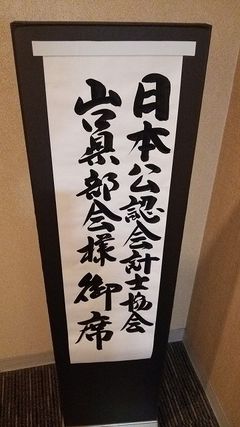 日本公認会計士協会
山口県部会様 御席